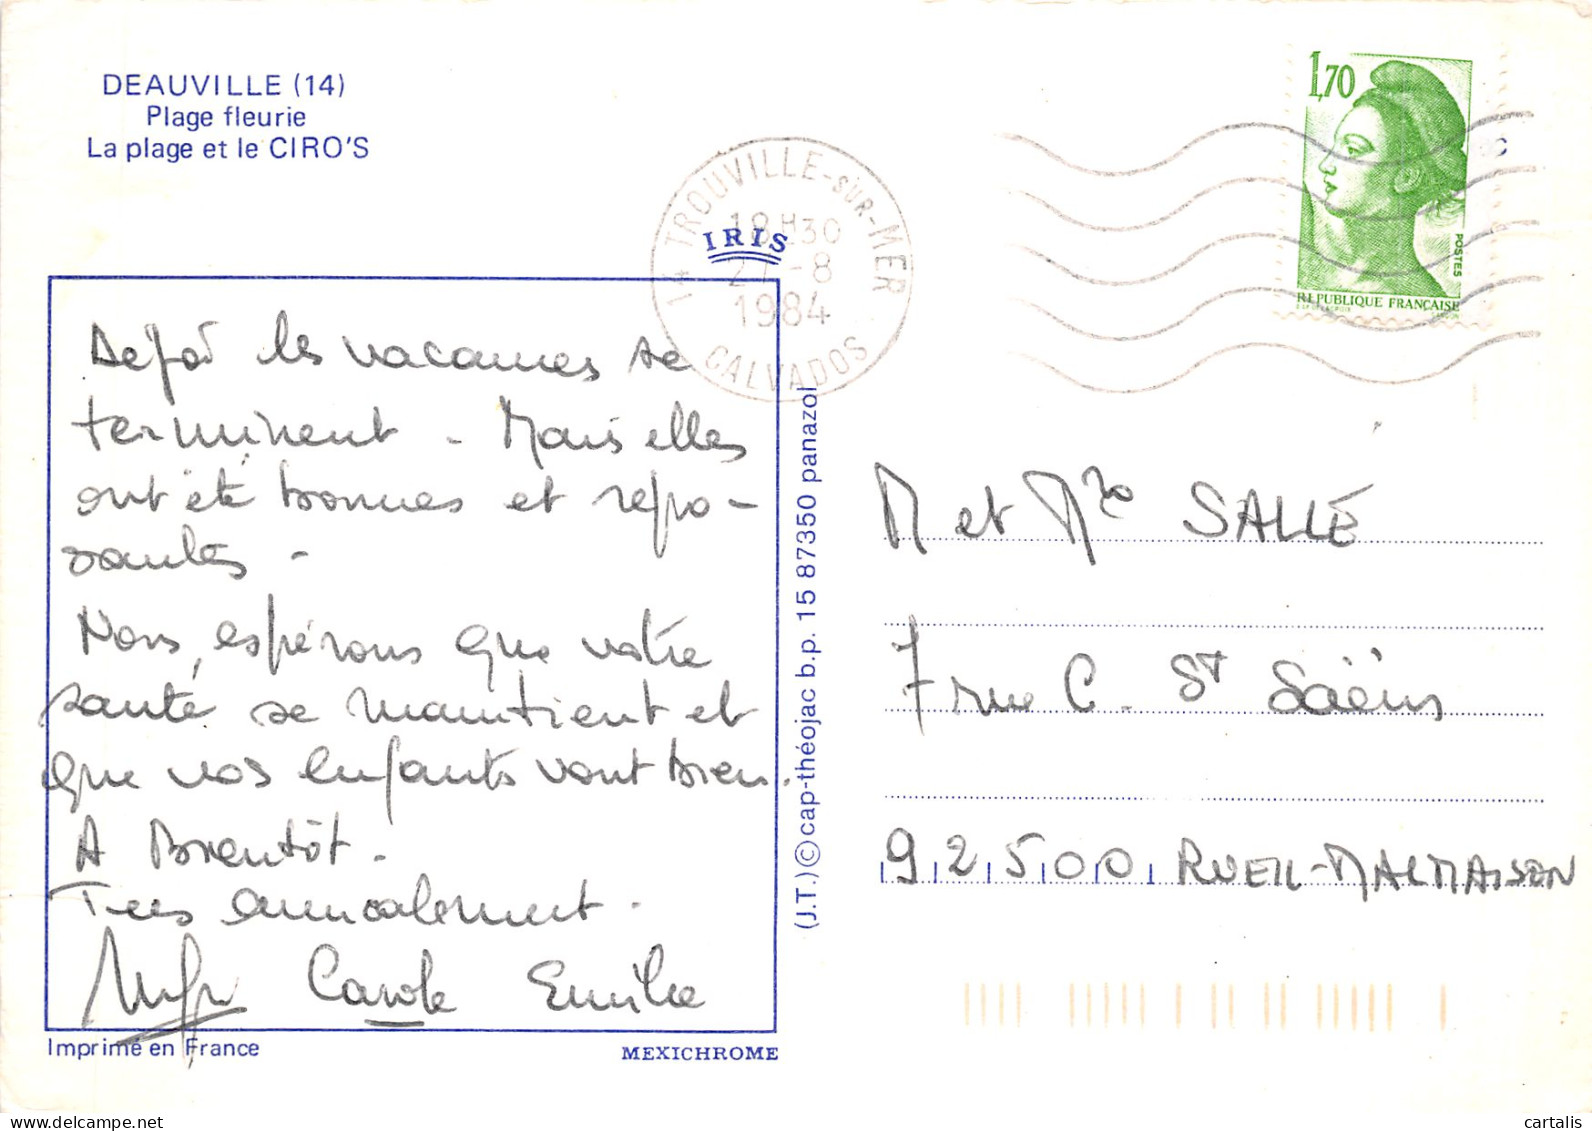 DEAUVILLE (14)
Plage fleurie
La plage et le CIRO'S
14 TROUVILLE-SUR-MER
18H30
-8
1984
CALVADOS
IRIS
1,70
POSTES
REPUBLIQUE FRANÇAISE
Déjà les vacances se
terminent - Mais elles
ont été bonnes et repo-
santes -
Nous espérons que votre
santé se maintient et
que vos enfants vont bien.
A Bientôt.
Très amicalement.
Carole Emilie
Imprimé en France
MEXICHROME
(J.T.) © cap-théojac b.p. 15 87350 panazol
M et Me SALLÉ
7 rue C. St Saëns
92500 RUEIL-MALMAISON
cartalis